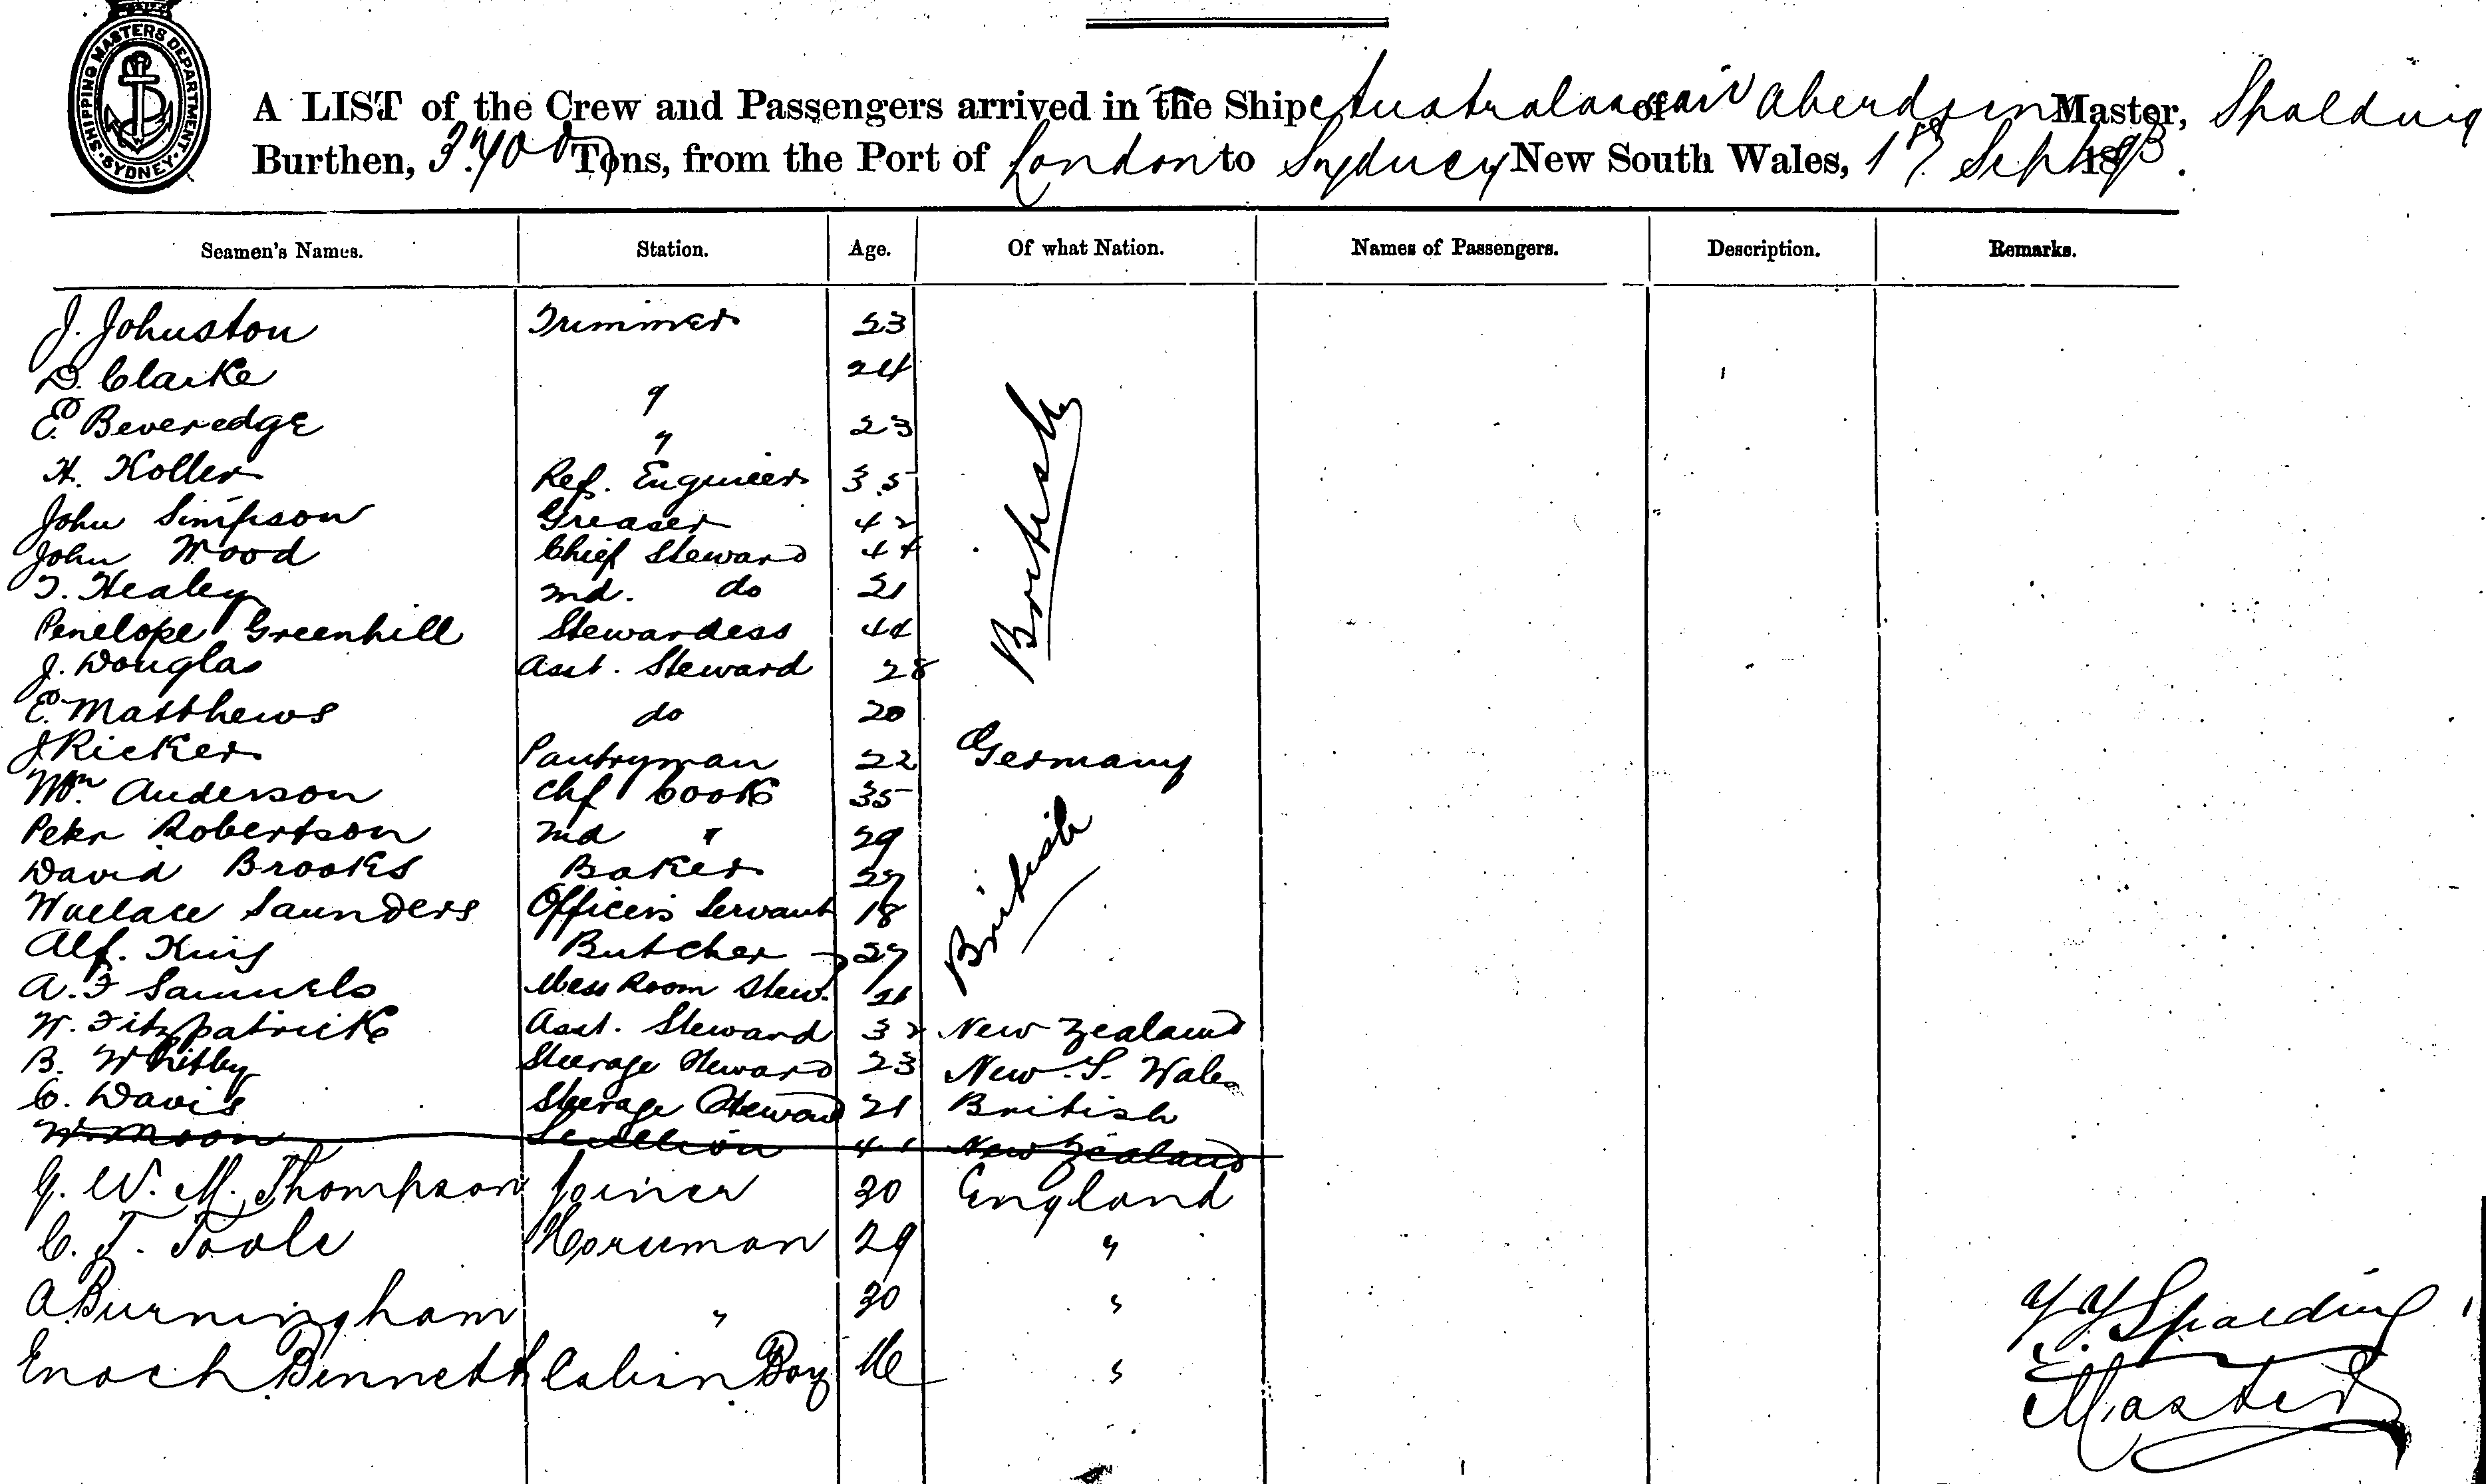 SHIPPING MASTERS DEPARTMENT. SYDNEY.
A LIST of the Crew and Passengers arrived in the Ship Australasian of Aberdeen Master, Spalding
Burthen, Tons, from the Port of London to Sydney New South Wales, 1st Sept 1893.
Seamen's Names. Station. Age. Of what Nation. Names of Passengers. Description. Remarks.
J. Johnston Trimmer 23
D. Clarke " 24
E. Beveredge " 23
H. Koller Ref. Engineer 35
John Simpson Greaser 42
John Wood Chief Steward 44
British
T. Healey 2nd. do 21
Penelope Greenhill Stewardess 44
J. Douglas Asst. Steward 28
E. Matthews do 20
J Ricker Pantryman 22 Germany
Wm Anderson Chf Cook 35
Peter Robertson 2nd " 29
David Brooks Baker 27
British
Wallace Saunders Officers Servant 18
Alf. King Butcher 27
A. F Samuels Mess Room Stew. 21
W. Fitzpatrick Asst. Steward 32 New Zealand
B. Whitby Steerage Steward 23 New. S. Wales
C. Davis Steerage Steward 21 British
W. Moon Scullion New Zealand
G. W. M. Thompson Joiner 30 England
C. T. Toole Horseman 29 "
A Burningham " 30 "
Enoch Bennett Cabin Boy 16 "
Spalding
Master